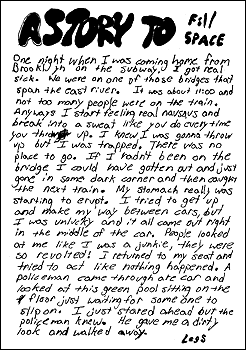 A STORY TO Fill
SPACE
One night when I was coming home from
Brooklyn on the subway, I got real
sick. We were on one of those bridges that
span the east river. It was about 11:00 and
not too many people were on the train.
Anyways I start feeling real nausaus and
break into a sweat like you do every time
you throw up. I knew I was gonna throw
up but I was trapped. There was no
place to go. If I hadn't been on the
bridge I could have gotten out and just
gone in some dark corner and then caught
the next train. My stomach really was
starting to erupt. I tried to get up
and make my way between cars, but
I was unlucky and it all came out right
in the middle of the car. People looked
at me like I was a junkie, they were
so revolted! I returned to my seat and
tried to act like nothing happened. A
policeman came through the car and
looked at this green pool sitting on the
floor just waiting for some one to
slip on. I just stared ahead but the
policeman knew. He gave me a dirty
look and walked away.
Legs